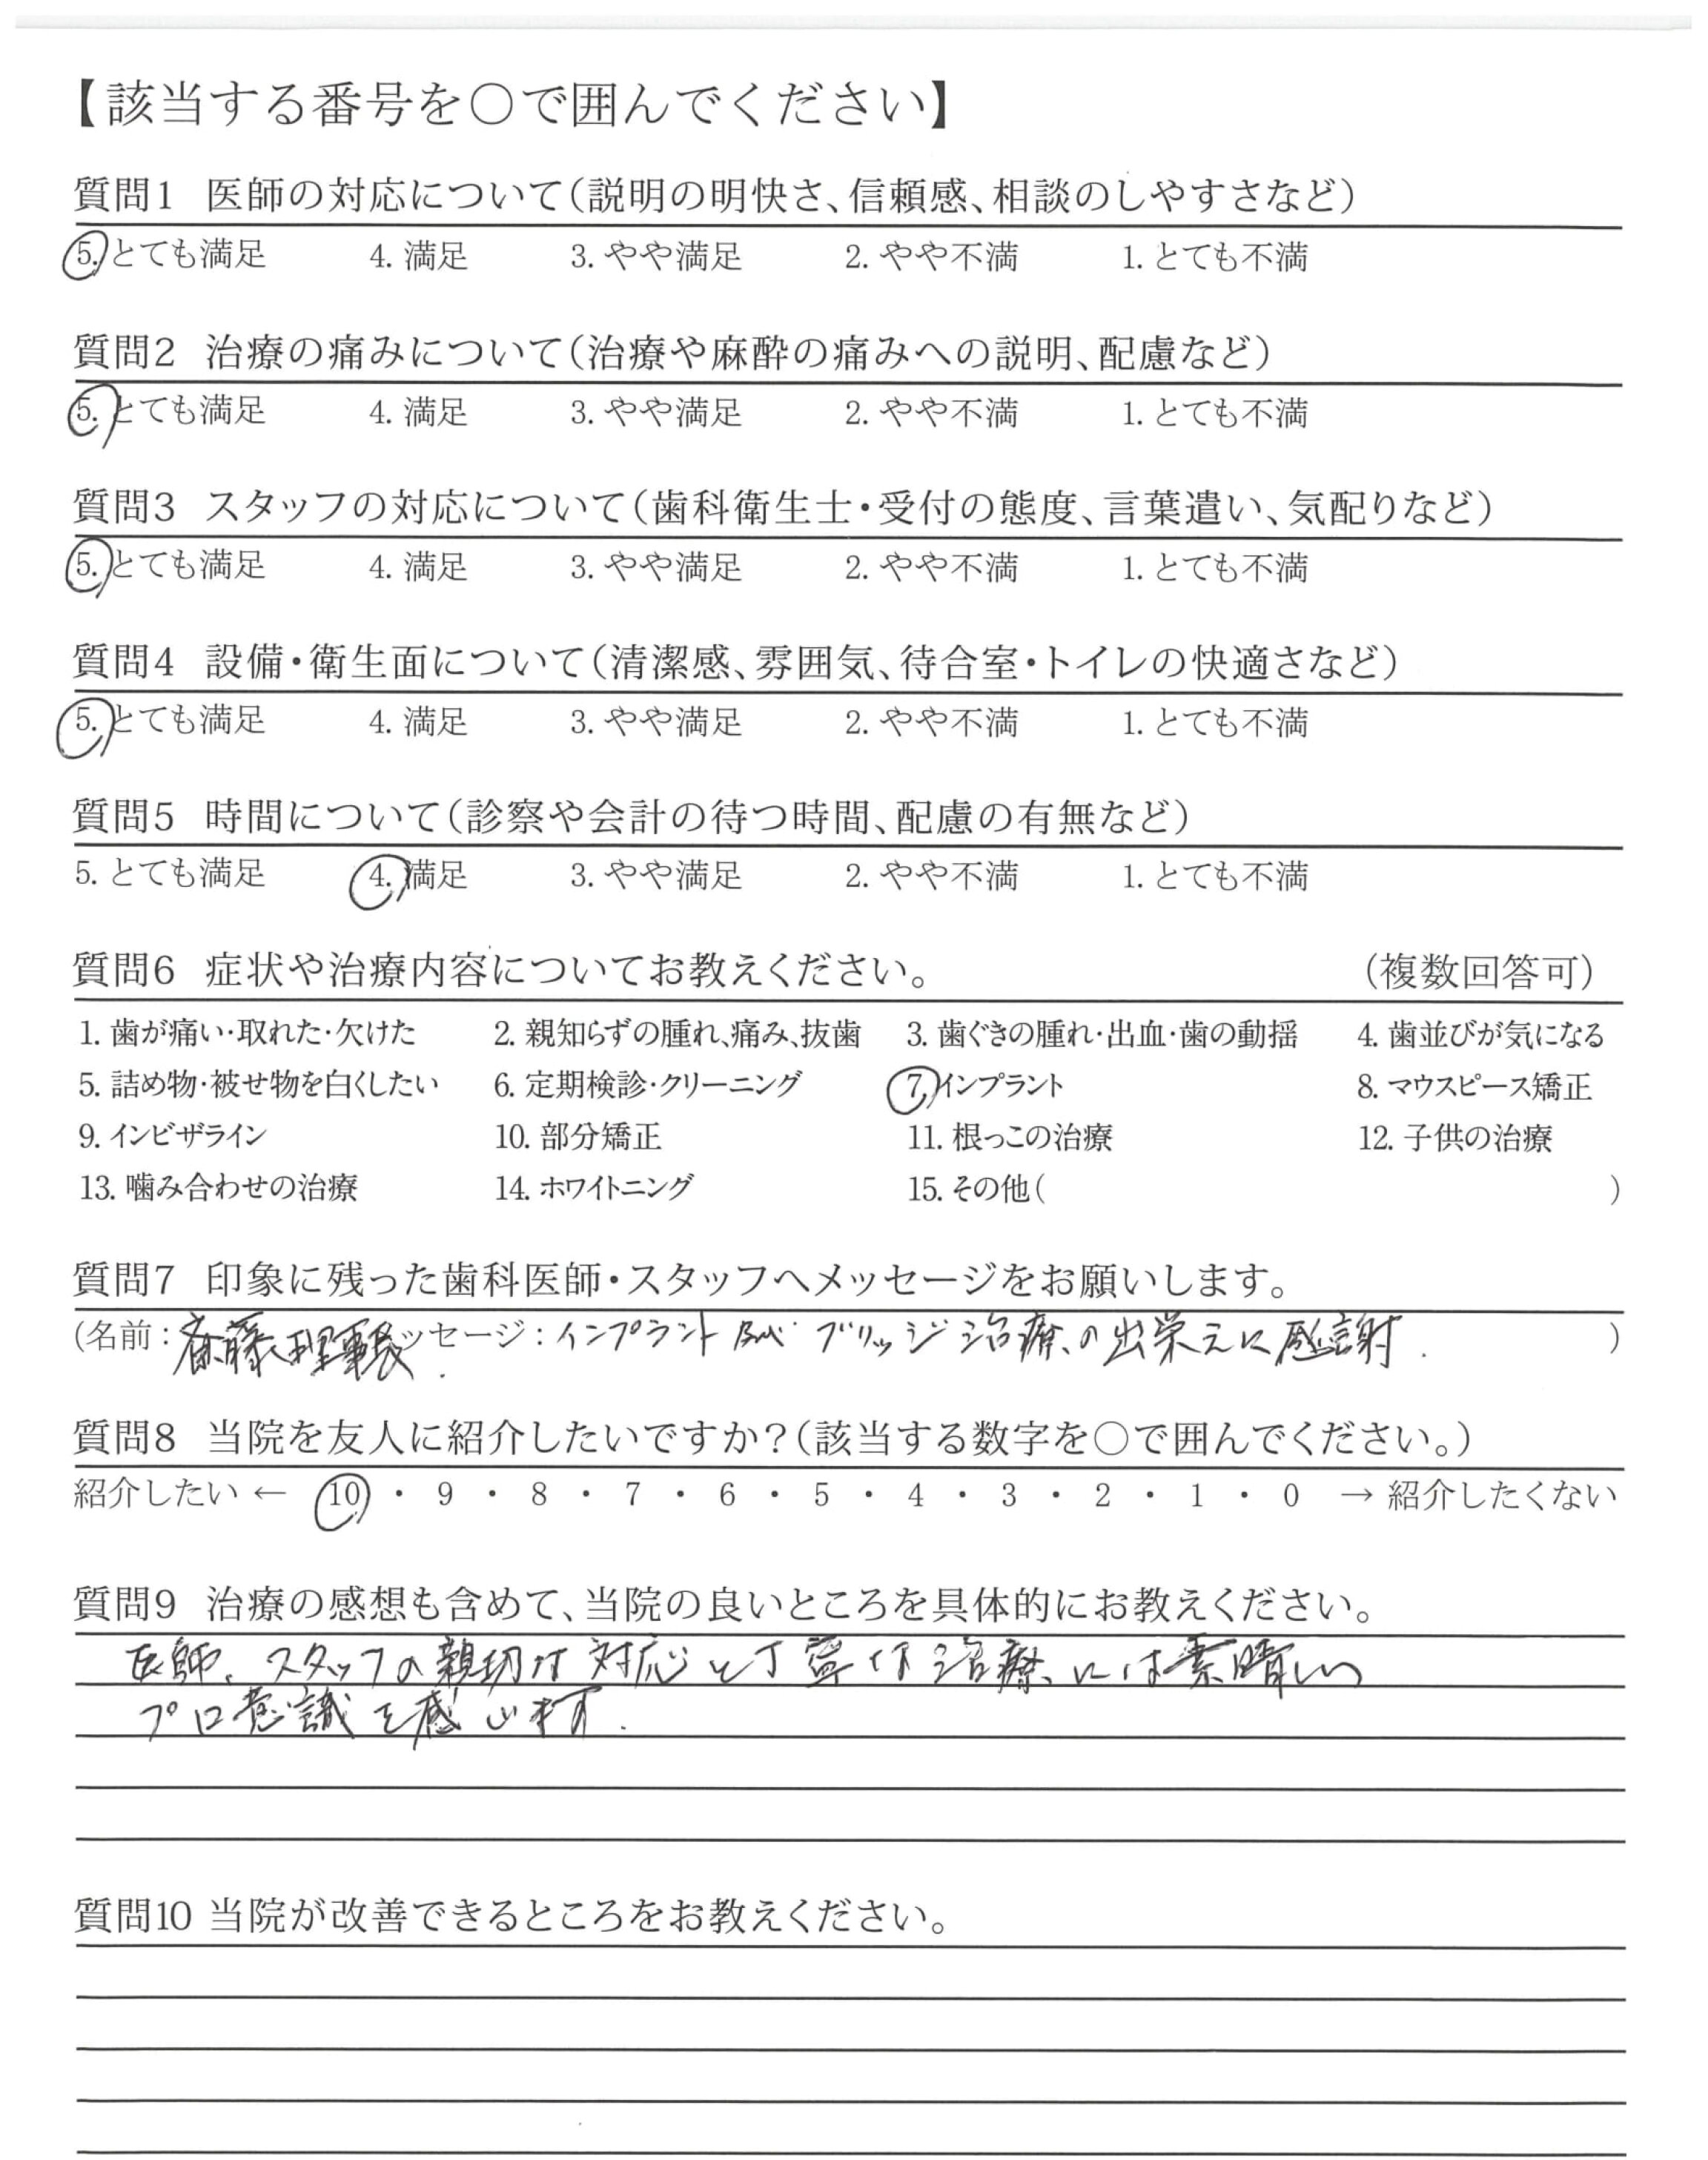 【該当する番号を○で囲んでください】
質問1 医師の対応について(説明の明快さ、信頼感、相談のしやすさなど)
5. とても満足 4. 満足 3. やや満足 2. やや不満 1. とても不満
質問2 治療の痛みについて(治療や麻酔の痛みへの説明、配慮など)
5. とても満足 4. 満足 3. やや満足 2. やや不満 1. とても不満
質問3 スタッフの対応について(歯科衛生士・受付の態度、言葉遣い、気配りなど)
5. とても満足 4. 満足 3. やや満足 2. やや不満 1. とても不満
質問4 設備・衛生面について(清潔感、雰囲気、待合室・トイレの快適さなど)
5. とても満足 4. 満足 3. やや満足 2. やや不満 1. とても不満
質問5 時間について(診察や会計の待つ時間、配慮の有無など)
5. とても満足 4. 満足 3. やや満足 2. やや不満 1. とても不満
質問6 症状や治療内容についてお教えください。 (複数回答可)
1. 歯が痛い・取れた・欠けた 2. 親知らずの腫れ、痛み、抜歯 3. 歯ぐきの腫れ・出血・歯の動揺 4. 歯並びが気になる
5. 詰め物・被せ物を白くしたい 6. 定期検診・クリーニング 7. インプラント 8. マウスピース矯正
9. インビザライン 10. 部分矯正 11. 根っこの治療 12. 子供の治療
13. 噛み合わせの治療 14. ホワイトニング 15. その他( )
質問7 印象に残った歯科医師・スタッフへメッセージをお願いします。
(名前:斎藤理事長 メッセージ:インプラント及びブリッジ治療の出栄えに感謝. )
質問8 当院を友人に紹介したいですか?(該当する数字を○で囲んでください。)
紹介したい ← 10 ・ 9 ・ 8 ・ 7 ・ 6 ・ 5 ・ 4 ・ 3 ・ 2 ・ 1 ・ 0 → 紹介したくない
質問9 治療の感想も含めて、当院の良いところを具体的にお教えください。
医師、スタッフの親切な対応と丁寧な治療には素晴しい
プロ意識を感じます.
質問10 当院が改善できるところをお教えください。